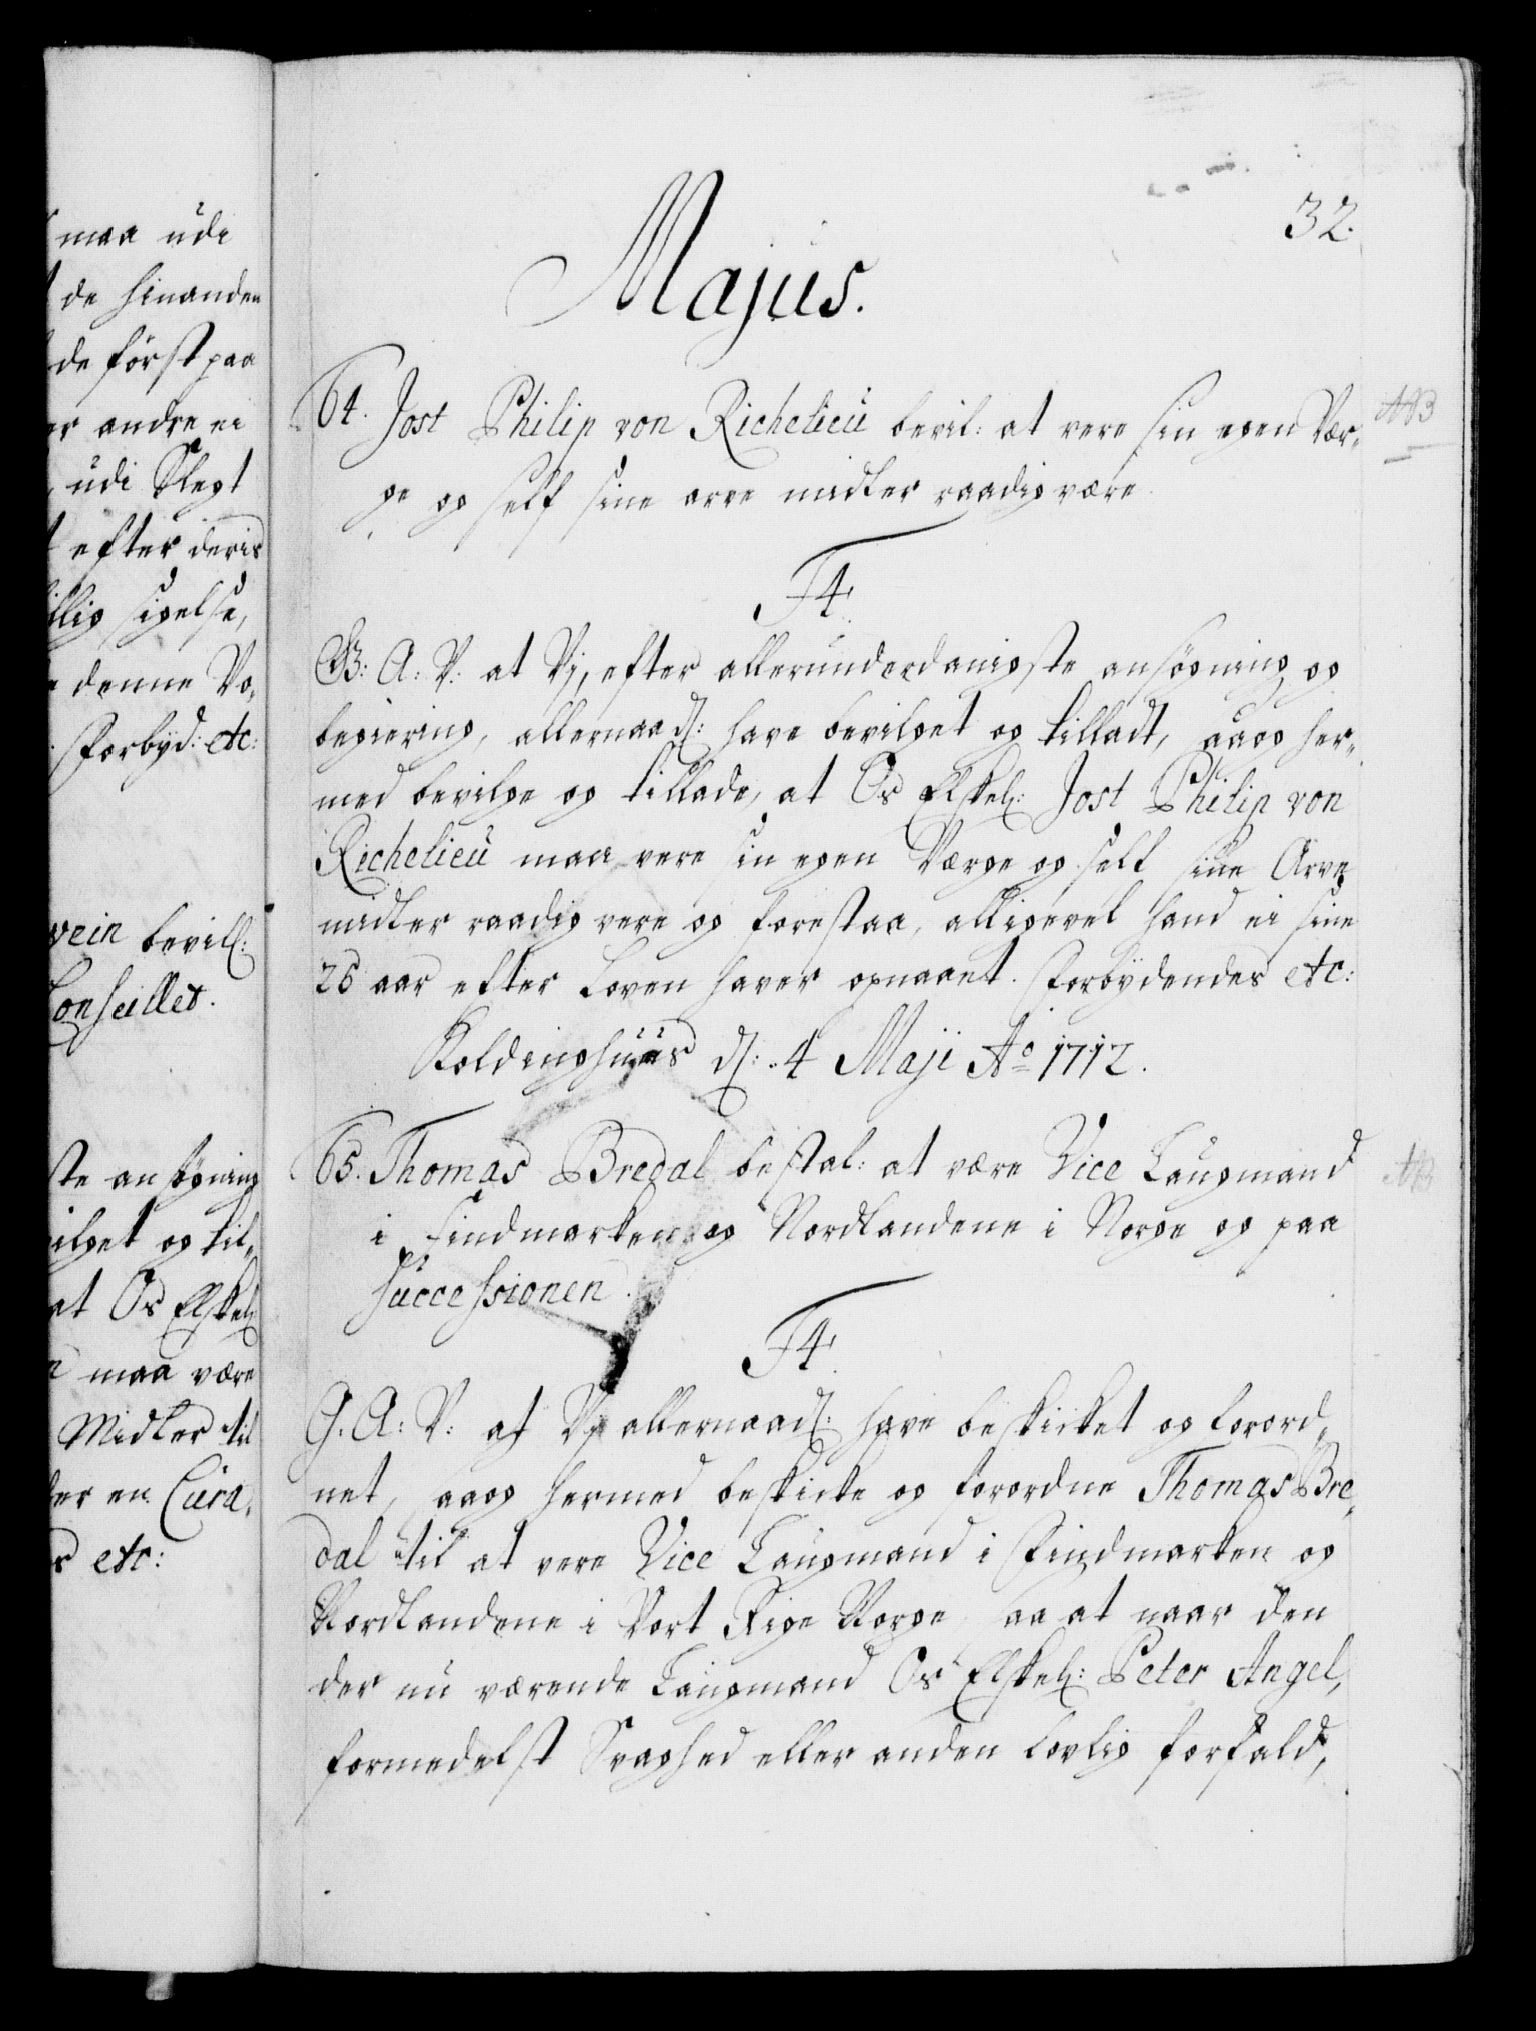 maa udi
de hinanden
de först paa
er andre ei
udi Slegt
efter deris
illig sigelse,
denne Vo„
Forbyd: etc:
vein bevil:
Conseillet.
ste ansögning
ilget og til„
at Os Elskel:
maa være
Midler til
er en Cura„
etc:
32.
Majus.
64. Jost Philip von Richelieu bevil: at vere sin egen Vær„
ge og self sine arve midler raadig være
F4.
G: A: V: at Vj, efter allerunderdanigste ansögning og
begiering, allernaad: have bevilget og tilladt, saa og her„
med bevilge og tillade, at Os Elskel: Jost Philip von
Richelieu maa vere sin egen Værge og self sine Arve
midler raadig vere og forestaa, alligevel hand ei sine
25 aar efter Loven haver opnaaet. Forbydendes etc:
Koldinghuus d: 4 Maji Ao 1712.
65. Thomas Bredal bestal: at være Vice Laugmand
i Findmarken og Nordlandene i Norge og paa
Successionen.
F4.
G. A: V: at Vj allernaad: have beskicket og forord„
net, saa og hermed beskicke og forordne Thomas Bre„
dal til at vere Vice Laugmand i Findmarken og
Nordlandene i Vort Rige Norge, saa at naar den
der nu værende Laugmand Os Elskel: Peter Angel,
formedelst Svaghed eller anden lovlig forfald,